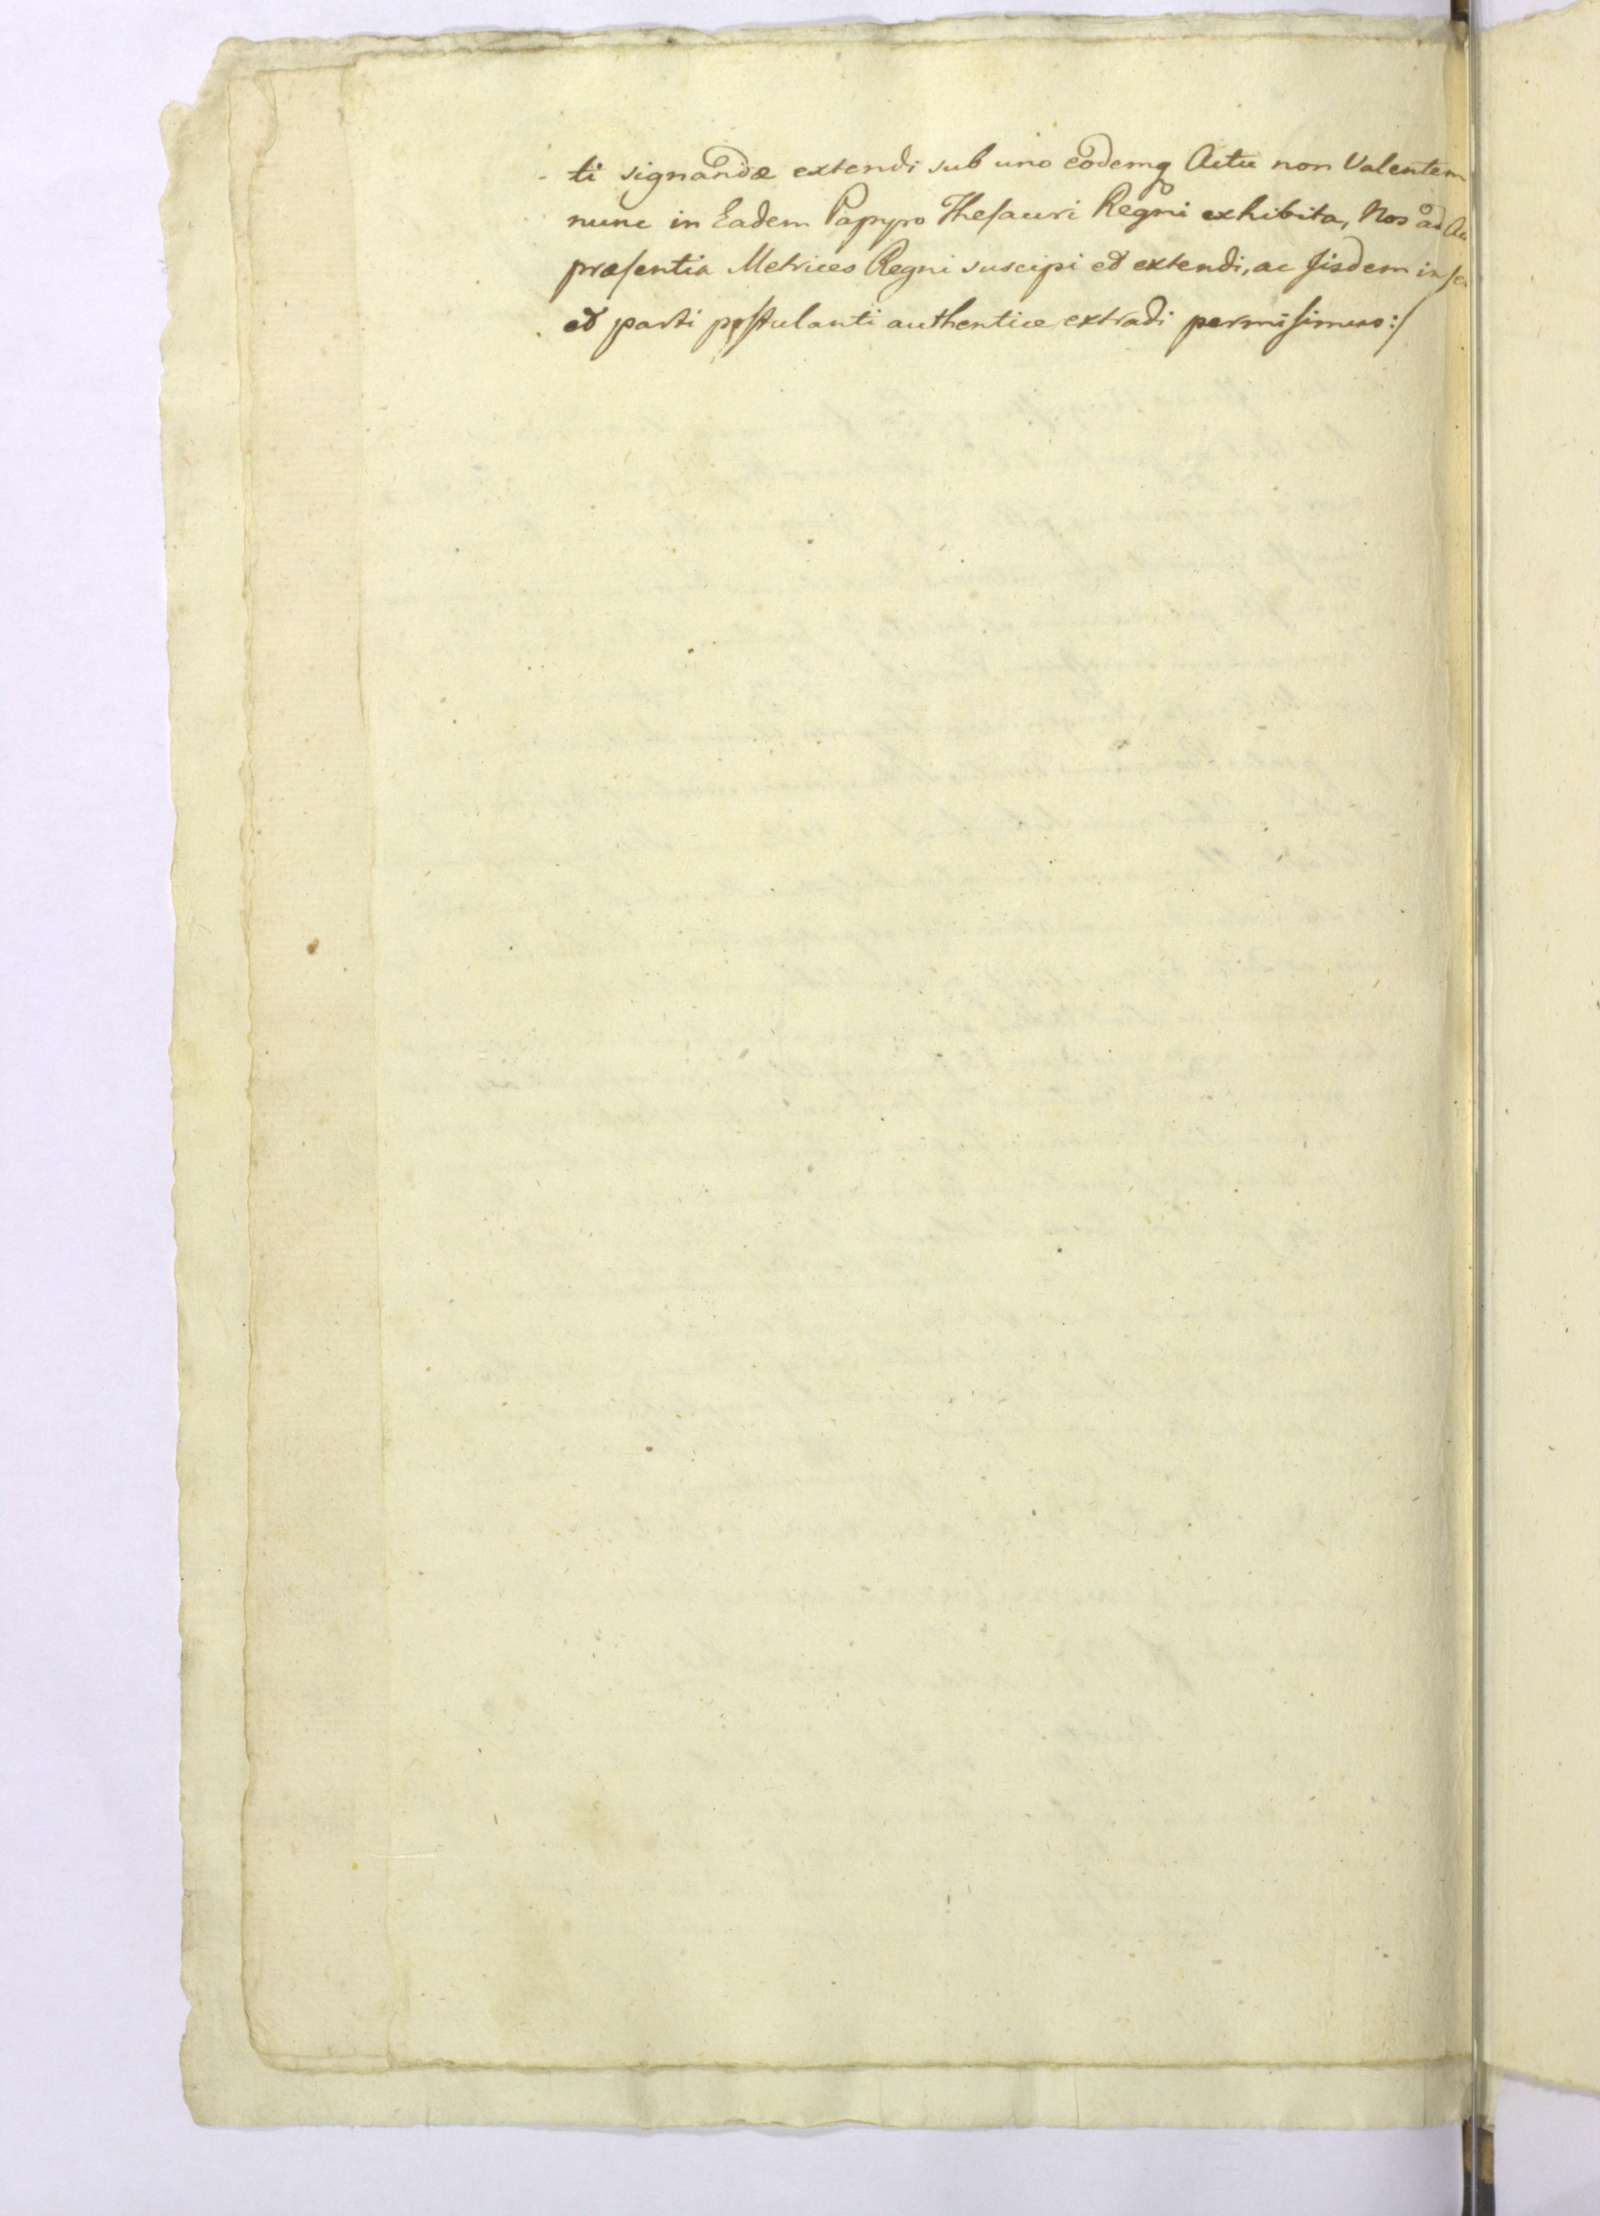 ti signandæ extendi sub uno eodemq Actu non Valentem
nunc in Eadem Papyro Thesauri Regni exhibita, Nos ad
præsentia Metrices Regni suscipi et extendi, ac Iisdem
et parti postulanti authentice extradi permisimus:/